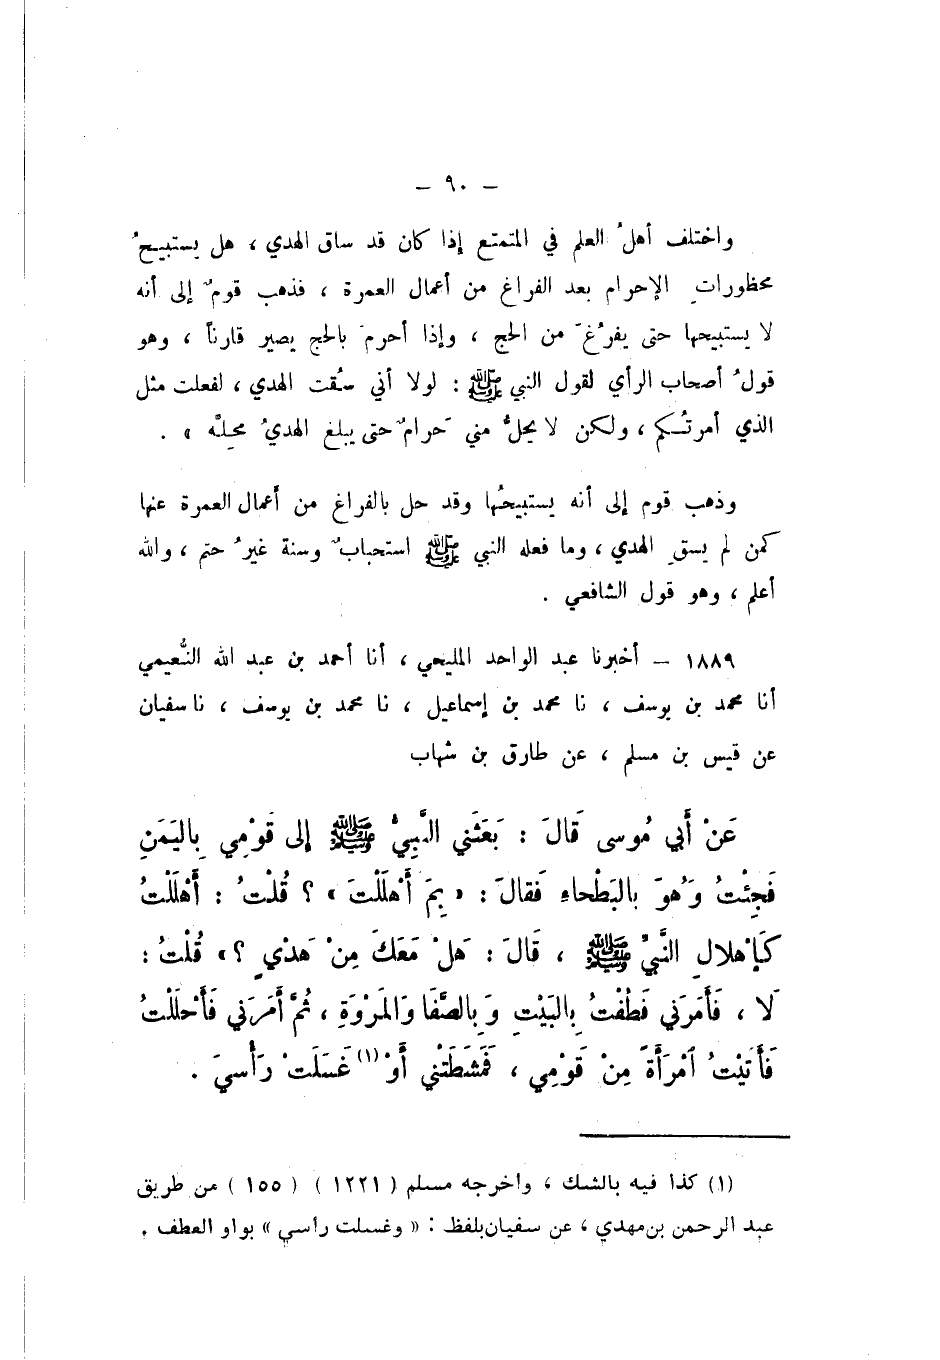 – ٩٠ –
واختلف أهلُ العلم في المتمتع إذا كان قد ساق الهدي ، هل يستبيحُ
محظوراتِ الإحرام بعد الفراغ من أعمال العمرة ، فذهب قومٌ إلى أنه
لا يستبيحها حتى يفرُغَ من الحج ، وإذا أحرمَ بالحج يصير قارناً ، وهو
قولُ أصحاب الرأي لقول النبي ﷺ : لولا أني سُقت الهدي ، لفعلت مثل
الذي أمرتُكم ، ولكن لا يحلُّ مني حَرامٌ حتى يبلغ الهديُ محِلَّه » .
وذهب قوم إلى أنه يستبيحُها وقد حل بالفراغ من أعمال العمرة عنها
كمن لم يسقِ الهدي ، وما فعله النبي ﷺ استحبابٌ وسنة غيرُ حتم ، والله
أعلم ، وهو قول الشافعي .
١٨٨٩ – أخبرنا عبد الواحد المليحي ، أنا أحمد بن عبد الله النُّعيمي
أنا محمد بن يوسف ، نا محمد بن إسماعيل ، نا محمد بن يوسف ، نا سفيان
عن قيس بن مسلم ، عن طارق بن شهاب
عَنْ أَبي مُوسى قَالَ : بَعَثَني النَّبِيُّ ﷺ إلى قَوْمِي بِاليَمَنِ
فَجِئْتُ وَهُوَ بالبَطْحاءِ فَقالَ : « بِمَ أَهْلَلْتَ » ؟ قُلْتُ : أَهْلَلْتُ
كَإِهْلالِ النَّبيِّ ﷺ ، قَالَ : هَلْ مَعَكَ مِنْ هَدْيٍ ؟» قُلْتُ :
لَا ، فَأَمَرَني فَطُفْتُ بِالبَيْتِ وَبِالصَّفَا وَالمَرْوَةِ ، ثُمَّ أَمَرَني فَأَحْلَلْتُ
فَأَتَيْتُ ٱمْرَأَةً مِنْ قَوْمِي ، فَمَشَطَتْني أَوْ (١) غَسَلَتْ رَأْسيَ .
(١) كذا فيه بالشك ، وأخرجه مسلم ( ١٢٢١ ) ( ١٥٥ ) من طريق
عبد الرحمن بن مهدي ، عن سفيان بلفظ : « وغسلت رأسي » بواو العطف .